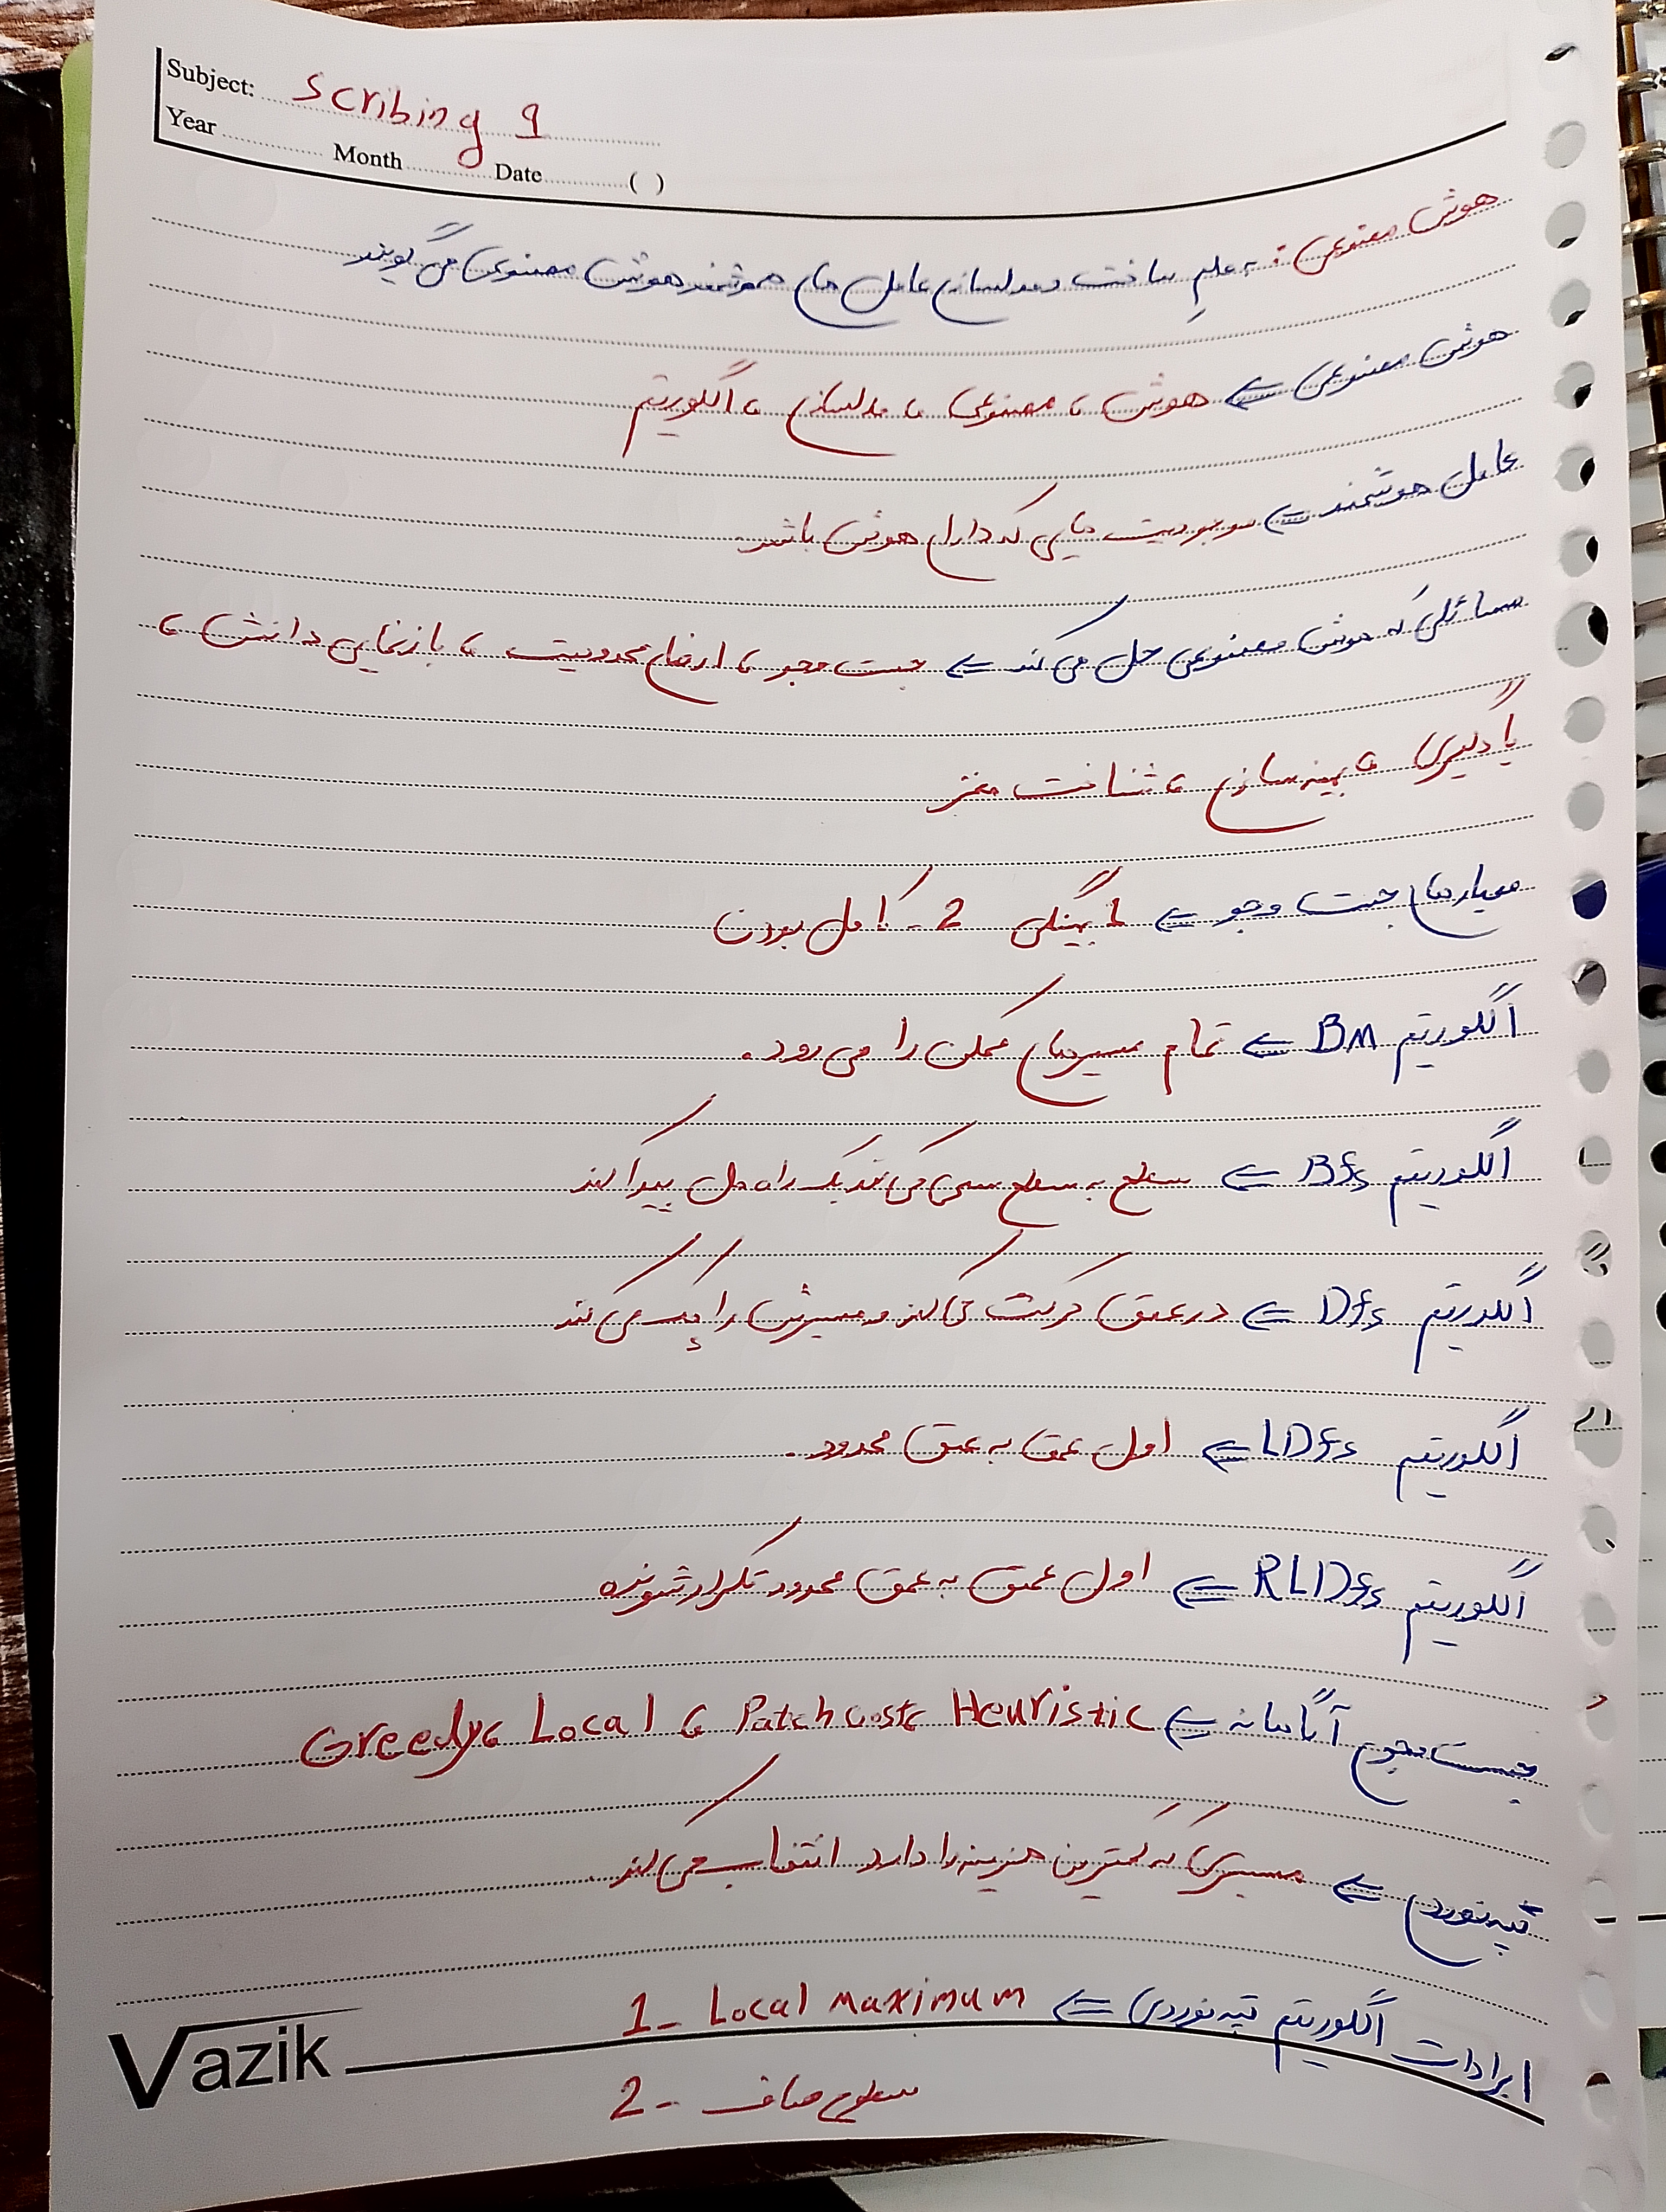 Subject: Scribing 1
Year Month Date ( )
هوش مصنوعی : به علمِ ساخت و مدلسازی عامل های هوشمند هوش مصنوعی می گویند
هوش مصنوعی ⇐ هوش ، مصنوعی ، مدلسازی ، الگوریتم
عامل هوشمند ⇐ موجودیت هایی که دارای هوش باشد.
مسائلی که هوش مصنوعی حل می کند ⇐ جست و جو ، ارضای محدودیت ، بازنمایی دانش ،
یادگیری ، بهینه سازی ، شناخت مغز
معیارهای جست و جو ⇐ 1- بهینگی 2- کامل بودن
الگوریتم BM ⇐ تمام مسیرهای ممکن را می رود.
الگوریتم Bfs ⇐ سطح به سطح سعی می کند یک راه حل پیدا کند
الگوریتم Dfs ⇐ در عمق حرکت می کند و مسیرش را چک می کند
الگوریتم LDfs ⇐ اول عمق به عمق محدود.
الگوریتم RLDfs ⇐ اول عمق به عمق محدود تکرار شونده
جست و جوی آگاهانه ⇐ Heuristic ، Patch cost ، Local ، Greedy
تپه نوردی ⇐ مسیری که کمترین هزینه را دارد انتخاب می کند.
ایرادات الگوریتم تپه نوردی ⇐ 1- Local maximum
2- سطوح صاف
Vazik